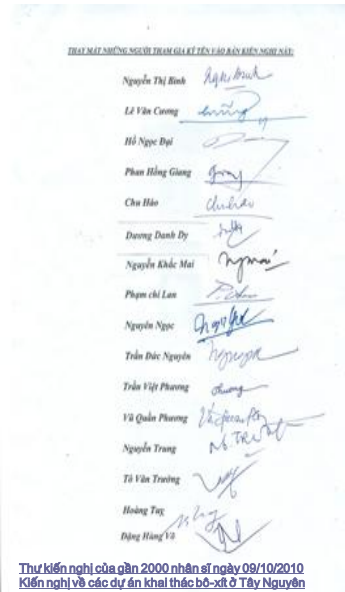 THAY MẶT NHỮNG NGƯỜI THAM GIA KÝ TÊN VÀO BẢN KIẾN NGHỊ NÀY:
Nguyễn Thị Bình
Lê Văn Cương
Hồ Ngọc Đại
Phan Hồng Giang
Chu Hảo
Dương Danh Dy
Nguyễn Khắc Mai
Phạm chi Lan
Nguyên Ngọc
Trần Đức Nguyên
Trần Việt Phương
Vũ Quần Phương
Nguyễn Trung
Tô Văn Trường
Hoàng Tụy
Đặng Hùng Võ
Thư kiến nghị của gần 2000 nhân sĩ ngày 09/10/2010
Kiến nghị về các dự án khai thác bô-xít ở Tây Nguyên